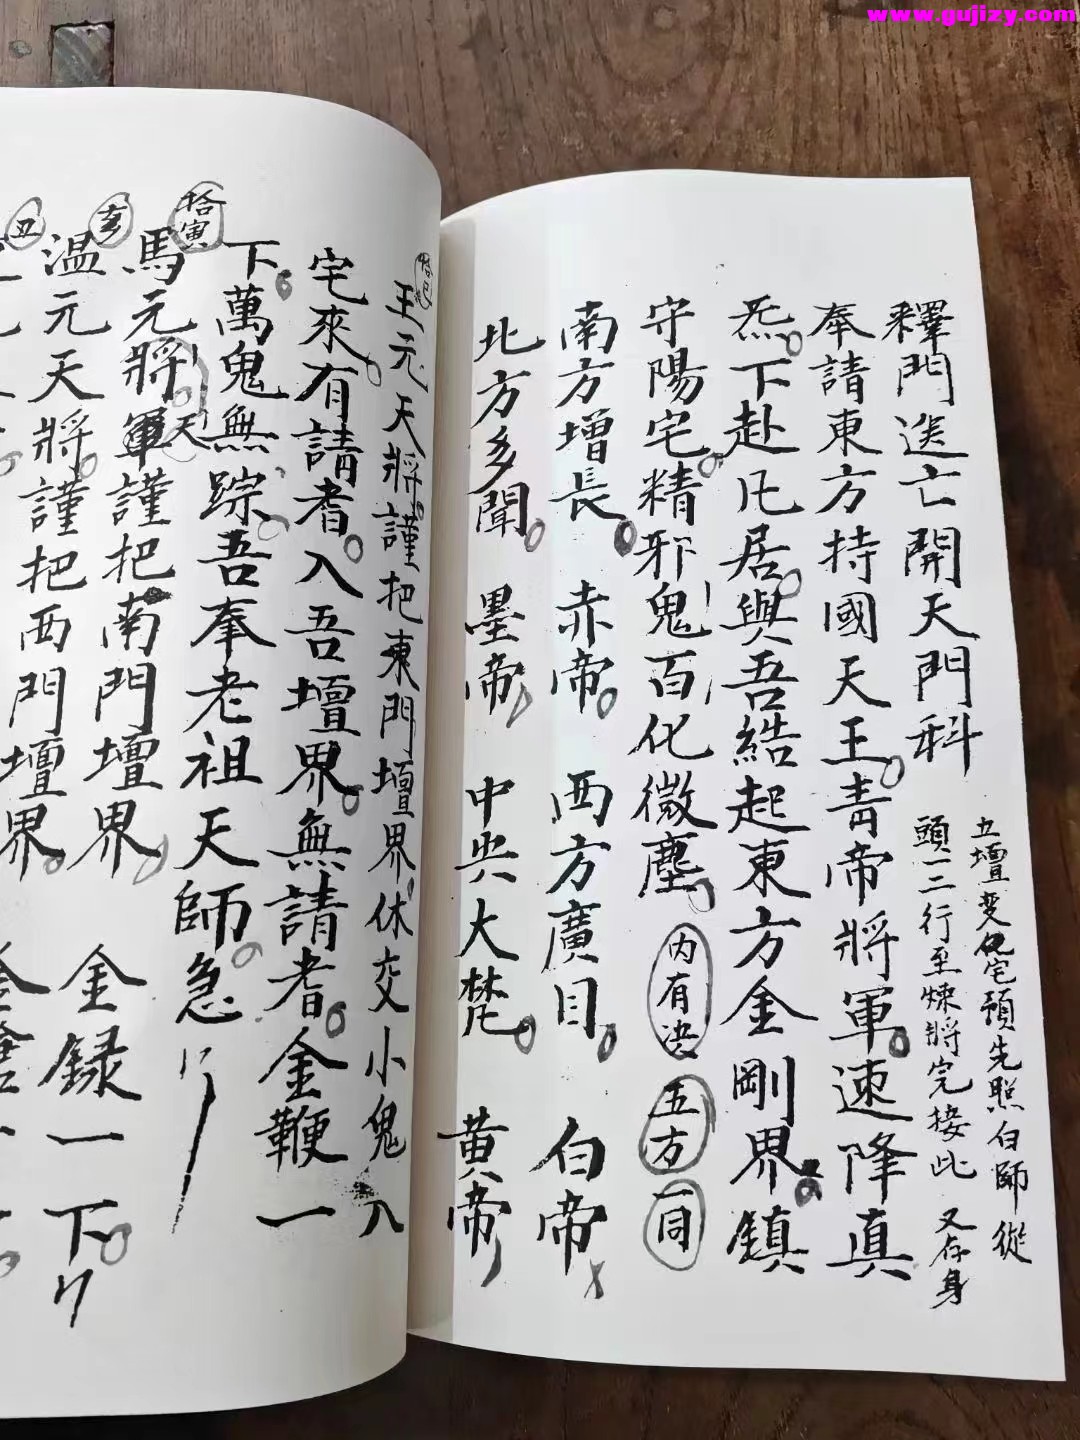 www.gujizy.com
釋門送亡開天門科
立壇变化宅預先照白師從
頭一二行至煉將完接此 又存身
奉請東方持國天王青帝將軍速降真
炁下赴凡居與吾結起東方金剛界鎮
守陽宅精邪鬼百化微塵 内有决 五方 同
南方增長 赤帝 西方廣目 白帝
北方多聞 墨帝 中央大梵 黄帝
王元天將謹把東門壇界休交小鬼入
宅來有請者入吾壇界無請者金鞭一
下萬鬼無踪吾奉老祖天師急
拾寅
馬元將軍謹把南門壇界
天
亥
温元天將謹把西門壇界 金録一下
丑
壇界